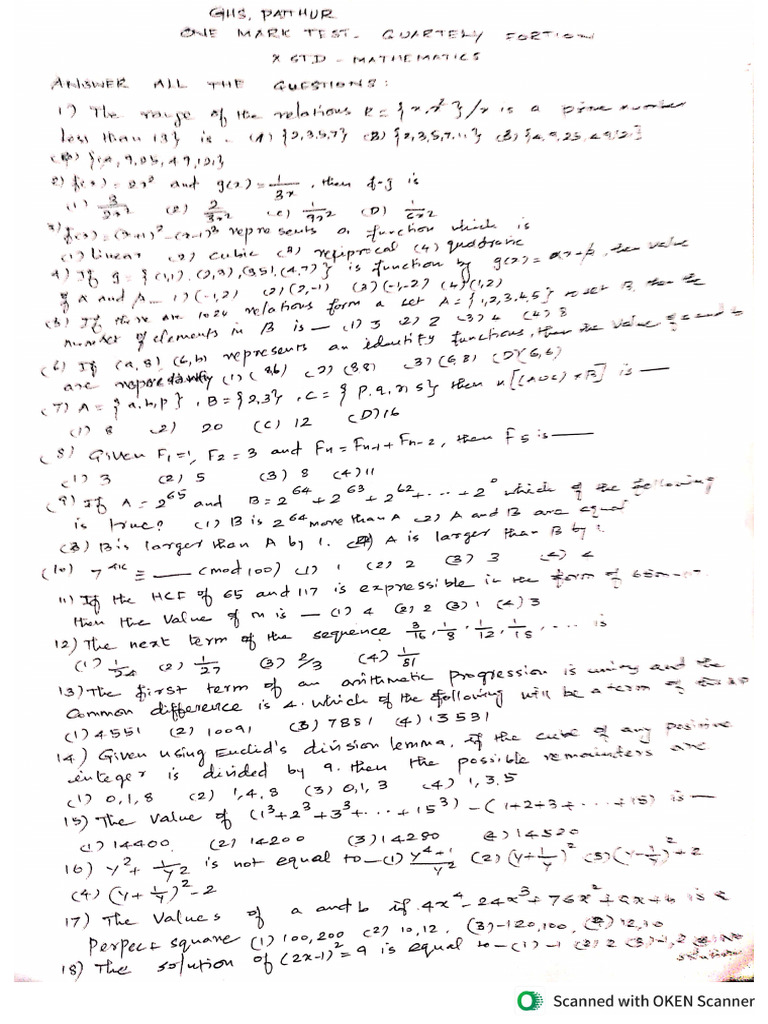 GHS, PATTHUR
ONE MARK TEST - QUARTELY PORTION
X STD - MATHEMATICS
ANSWER ALL THE QUESTIONS:
1) The range of the relations R = {x, x²}/x is a prime number
less than 13} is - (A) {2,3,5,7} (2) {2,3,5,7,11} (3) {4,9,25,49,121}
{4,9,25,49,121}
2) f(x) = 2x² and g(x) = 1/3x, then f∘g is
(1) 3/2x² (2) 2/3x² (c) 1/9x² (D) 1/6x²
f(x) = (x+1)³ - (x-1)³ represents a function which is
(1) linear (2) cubic (3) reciprocal (4) quadratic
4) If g = {(1,1), (2,3), (3,5), (4,7)} is function by g(x) = αx-β, the value
1) (-1,2) (2) (2,-1) (3) (-1,-2) (4) (1,2)
(5) If there are 1024 relations form a set A = {1,2,3,4,5} to set B, then the
number of elements in B is — (1) 3 (2) 2 (3) 4 (4) 8
(6) If (a,8) (6,b) represents an identity functions, then the value of a and b
are (1) (8,6) (2) (8,8) (3) (6,8) (D) (6,6)
(7) A = {a,b,p}, B = {2,3}, C = {p,q,r,s} then n[(AUC)×B] is —
(1) 8 (2) 20 (C) 12 (D) 16
(8) Given F₁=1, F₂=3 and Fn = Fn-1 + Fn-2, then F5 is —
(1) 3 (2) 5 (3) 8 (4) 11
(9) If A = 2^65 and B = 2^64 + 2^63 + 2^62 + ... + 2^0 which of the following
is true? (1) B is 2^64 more than A (2) A and B are equal
(3) B is larger than A by 1. (4) A is larger than B by 1.
(10) 7^4k ≡ — (mod 100) (1) 1 (2) 2 (3) 3 (4) 4
11) If the HCF of 65 and 117 is expressible in the form of 65m-117
then the value of m is — (1) 4 (2) 2 (3) 1 (4) 3
12) The next term of the sequence 3/16, 1/8, 1/12, 1/18, .... is
(1) 1/24 (2) 1/27 (3) 2/3 (4) 1/81
13) The first term of an arithmatic progression is unity and the
common difference is 4. which of the following will be a term of this AP
(1) 4551 (2) 10091 (3) 7881 (4) 13531
14) Given using Euclid's division lemma, if the cube of any positive
integer is divided by 9. then the possible remainters are
(1) 0,1,8 (2) 1,4,8 (3) 0,1,3 (4) 1,3,5
15) The value of (1³+2³+3³+...+15³) - (1+2+3+....+15) is —
(1) 14400 (2) 14200 (3) 14280 (4) 14520
16) y² + 1/y² is not equal to - (1) y⁴+1/y² (2) (y+1/y)² (3) (y-1/y)²+2
(4) (y+1/y)²-2
17) The values of a and b if 4x⁴ - 24x³ + 76x² + ax + b is a
perfect square (1) 100,200 (2) 10,12. (3) -120,100, (4) 12,10
18) The solution of (2x-1)² = 9 is equal to - (1) -1 (2) 2 (3) -1,2 (4) No
solution
Scanned with OKEN Scanner